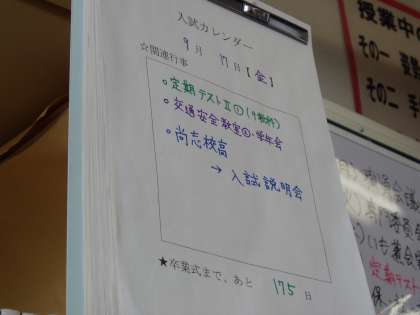 入試カレンダー
9月 17日【金】
☆関連行事
○定期テストⅡ①(9教科)
○交通安全教室⑥・学年会
○尚志校高
→入試説明会
★卒業式まで、あと 175 日
授業中の
その一
その二
定期テスト